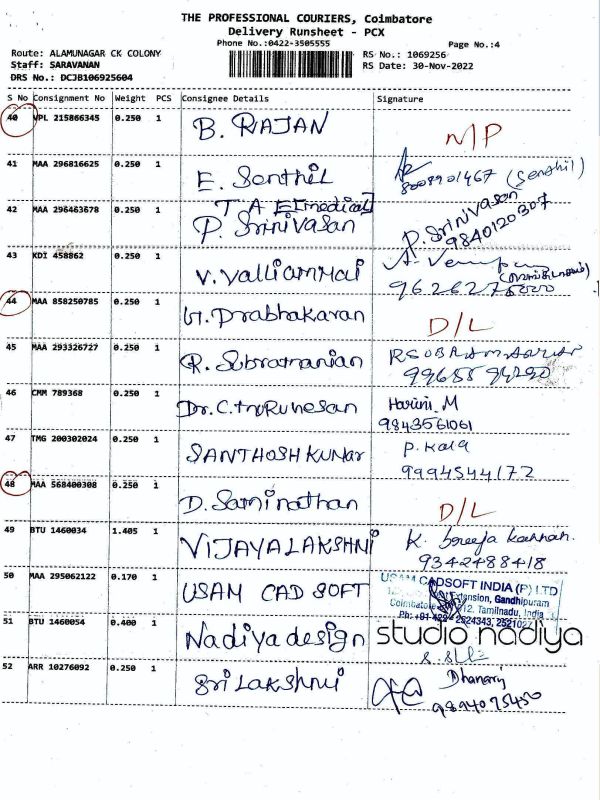 THE PROFESSIONAL COURIERS, Coimbatore
Delivery Runsheet - PCX
Phone No.:0422-3505555
Page No.:4
Route: ALAMUNAGAR CK COLONY
RS No.: 1069256
Staff: SARAVANAN
RS Date: 30-Nov-2022
DRS No.: DCJB106925604
S No Consignment No Weight PCS Consignee Details Signature
40 VPL 215866345 0.250 1 B. RAJAN N/P
41 MAA 296816625 0.250 1 E. Senthil
(Senthil)
T A
42 MAA 296463678 0.250 1 P. Srinivasan P. Srinivasan
9840120307
43 KDI 458862 0.250 1 V. Valliammai
44 MAA 858250785 0.250 1 Prabhakaran D/L
45 MAA 293326727 0.250 1 R. Subramanian
46 CMM 789368 0.250 1 Dr. C. Harini. M
9843561061
47 TMG 200302024 0.250 1 SANTHOSH KUMAR P. Kala
9994544172
48 MAA 568400308 0.250 1 D. Saminathan D/L
49 BTU 1460034 1.405 1 VIJAYALAKSHMI K.
9342488418
50 MAA 295062122 0.170 1 USAM CAD SOFT USAM CADSOFT INDIA (P) LTD
Extension, Gandhipuram
Coimbatore 12. Tamilnadu, India
2524343, 2521027
51 BTU 1460054 0.400 1 Nadiya design studio nadiya
52 ARR 10276092 0.250 1 Sri Lakshmi